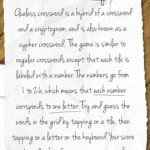 Clueless crossword is a hybrid of a crossword
and a cryptogram, and is also known as a
cypher crossword. The game is similar to
regular crosswords, except that each tile is
labelled with a number. The numbers go from
1 to 26 which means that each number
corrsponds to one letter. Try and guess the
words in the grid by tapping on a tile, then
tapping on a letter on the keyboard. Your score